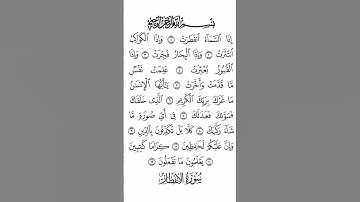 بِسْمِ ٱللَّهِ ٱلرَّحْمَٰنِ ٱلرَّحِيمِ
إِذَا ٱلسَّمَآءُ ٱنفَطَرَتْ ۝ وَإِذَا ٱلْكَوَاكِبُ
ٱنتَثَرَتْ ۝ وَإِذَا ٱلْبِحَارُ فُجِّرَتْ ۝ وَإِذَا
ٱلْقُبُورُ بُعْثِرَتْ ۝ عَلِمَتْ نَفْسٌ
مَّا قَدَّمَتْ وَأَخَّرَتْ ۝ يَٰٓأَيُّهَا ٱلْإِنسَٰنُ
مَا غَرَّكَ بِرَبِّكَ ٱلْكَرِيمِ ۝ ٱلَّذِى خَلَقَكَ
فَسَوَّىٰكَ فَعَدَلَكَ ۝ فِىٓ أَىِّ صُورَةٍ مَّا
شَآءَ رَكَّبَكَ ۝ كَلَّا بَلْ تُكَذِّبُونَ بِٱلدِّينِ ۝
وَإِنَّ عَلَيْكُمْ لَحَٰفِظِينَ ۝ كِرَامًا كَٰتِبِينَ
۝ يَعْلَمُونَ مَا تَفْعَلُونَ ۝
سُورَةُ الِانفِطَارِ